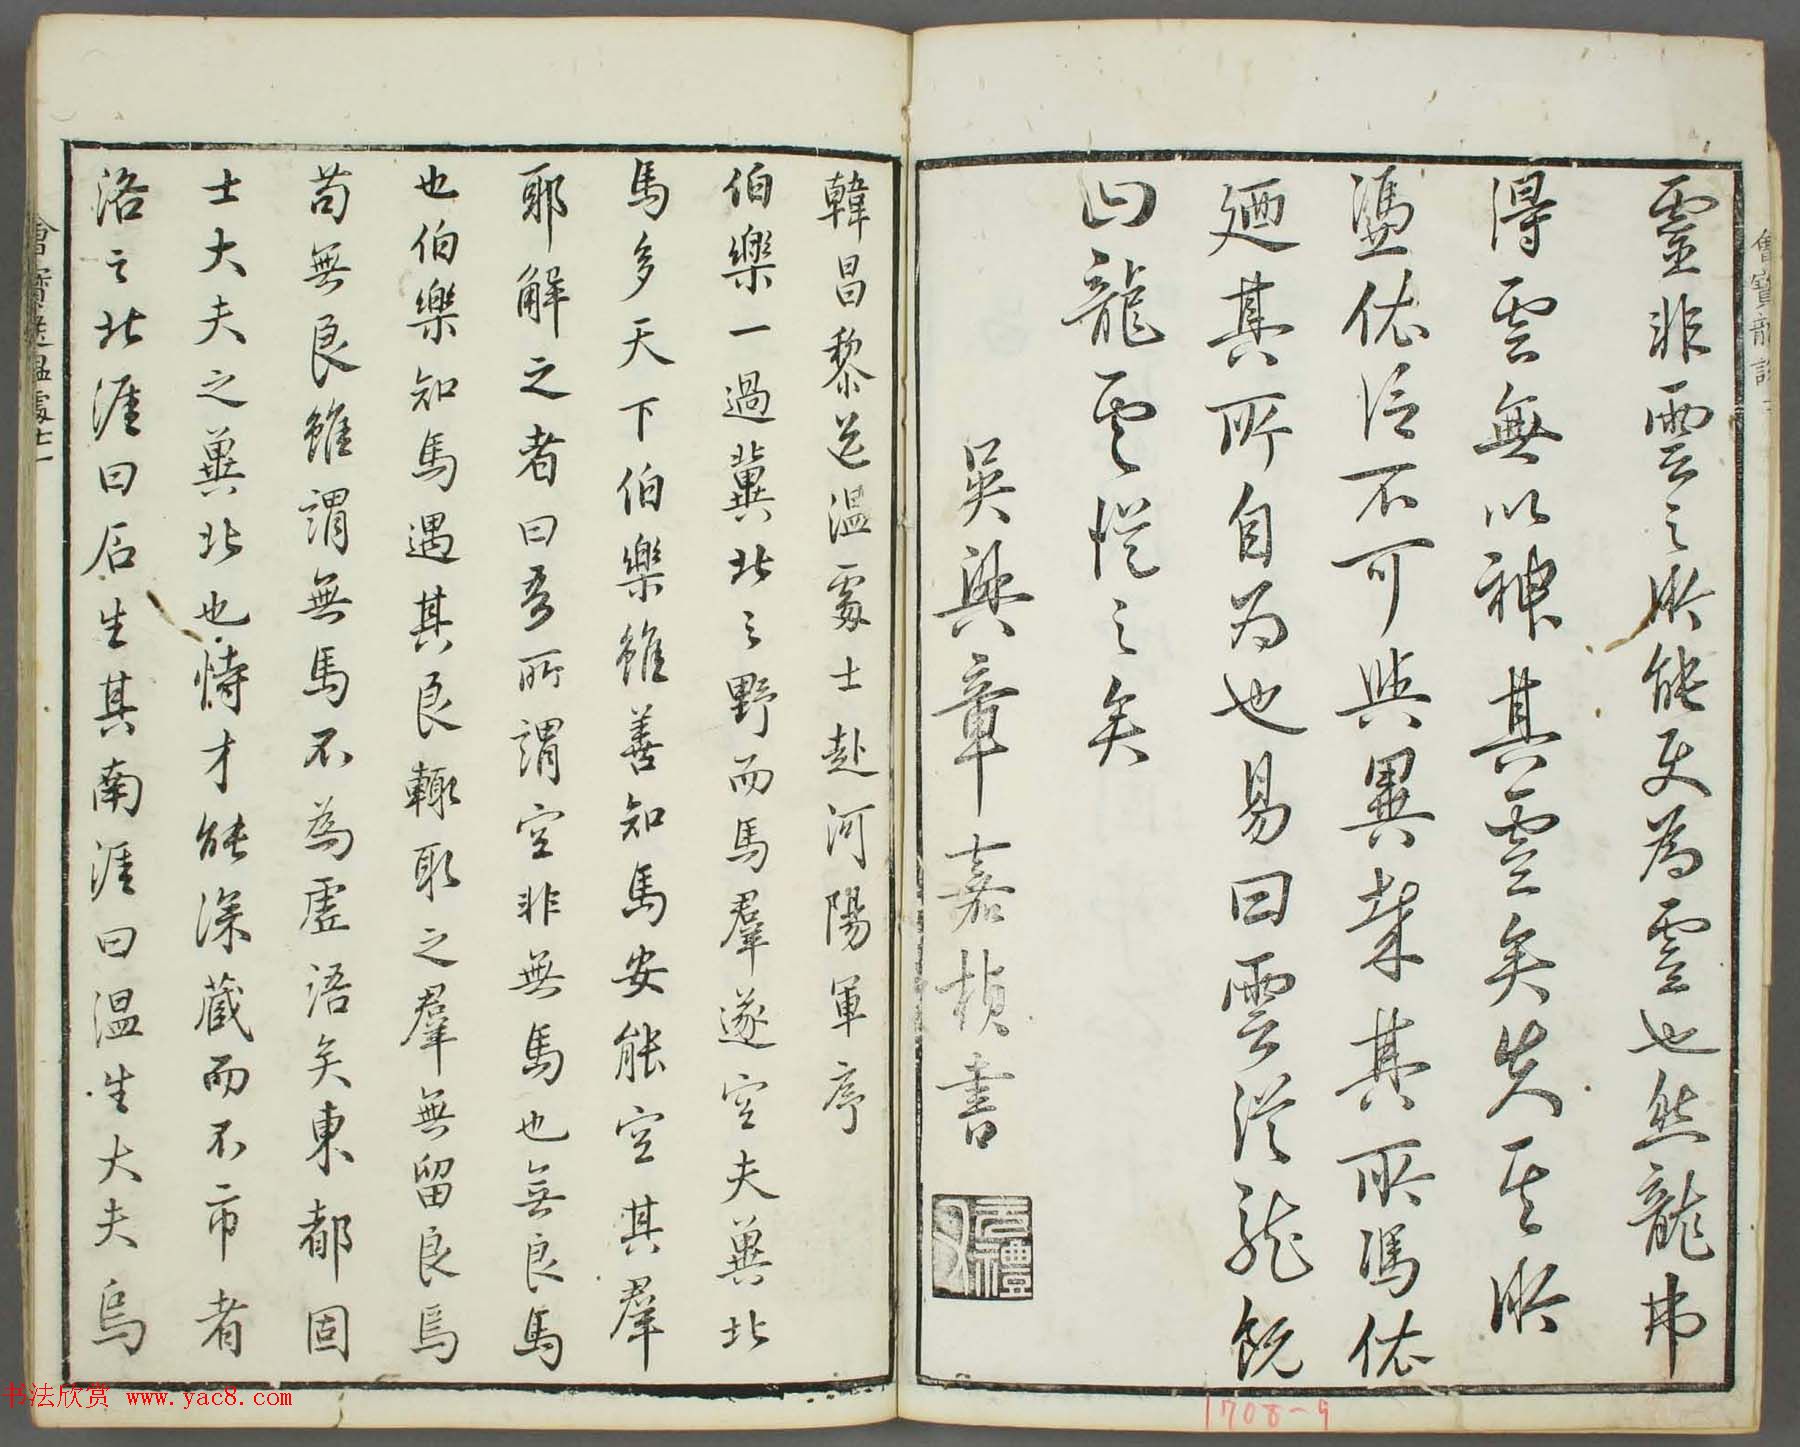 靈非雲之所能使為靈也然龍弗
得雲無以神其靈矣失其所
憑依信不可與異哉其所馮依
廼其所自为也易曰雲從龍既
曰龍雲從之矣
吳興章嘉楨書
韓昌黎送溫處士赴河陽軍序
伯樂一過冀北之野而馬羣遂空夫冀北
馬多天下伯樂雖善知馬安能空其羣
耶解之者曰吾所謂空非無馬也無良馬
也伯樂知馬遇其良輒取之羣無留良焉
苟無良雖謂無馬不為虛語矣東都固
士大夫之冀北也恃才能深藏而不市者
洛之北涯曰石生其南涯曰溫生大夫烏
書法欣赏 www.yac8.com
1708-9